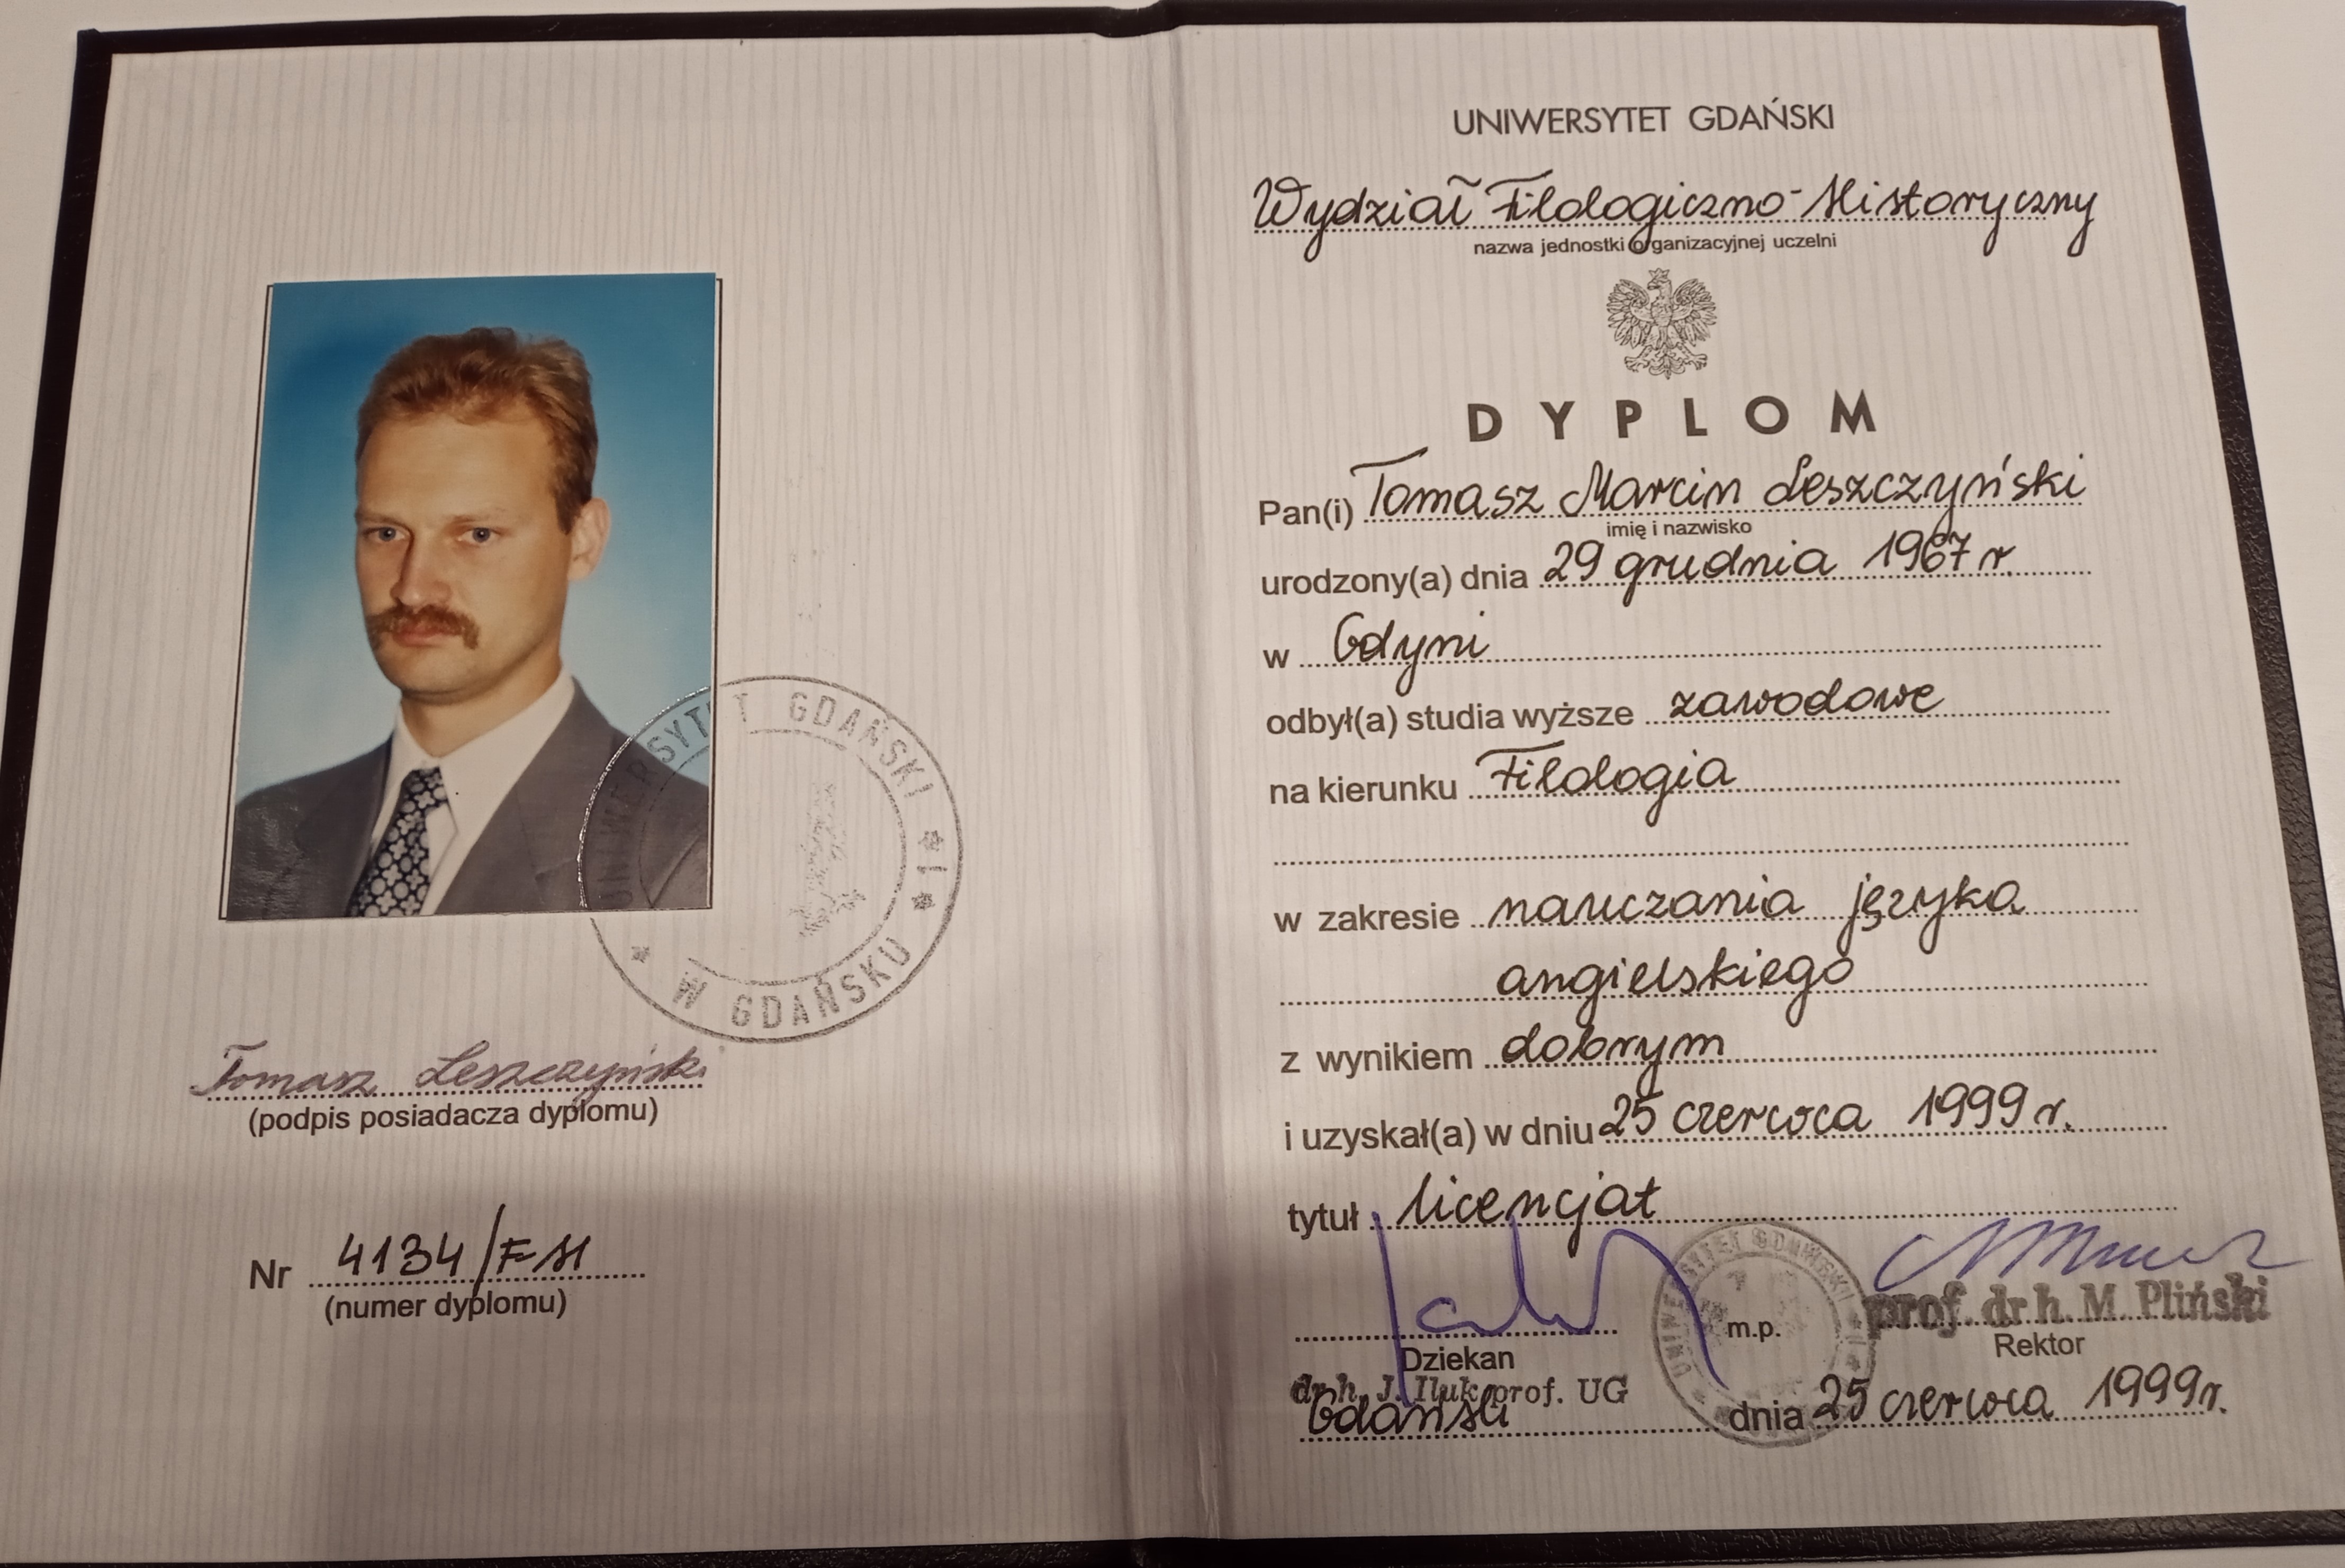 UNIWERSYTET GDAŃSKI
W GDAŃSKU
Tomasz Leszczyński
(podpis posiadacza dyplomu)
Nr 4134/FH
(numer dyplomu)
UNIWERSYTET GDAŃSKI
Wydział Filologiczno-Historyczny
nazwa jednostki organizacyjnej uczelni
DYPLOM
Pan(i) Tomasz Marcin Leszczyński
imię i nazwisko
urodzony(a) dnia 29 grudnia 1967 r.
w Gdyni
odbył(a) studia wyższe zawodowe
na kierunku Filologia
w zakresie nauczania języka
angielskiego
z wynikiem dobrym
i uzyskał(a) w dniu 25 czerwca 1999 r.
tytuł licencjat
m.p.
prof. dr h. M. Pliński
Dziekan
Rektor
dr h. J. Iluk prof. UG
Gdańsk dnia 25 czerwca 1999 r.